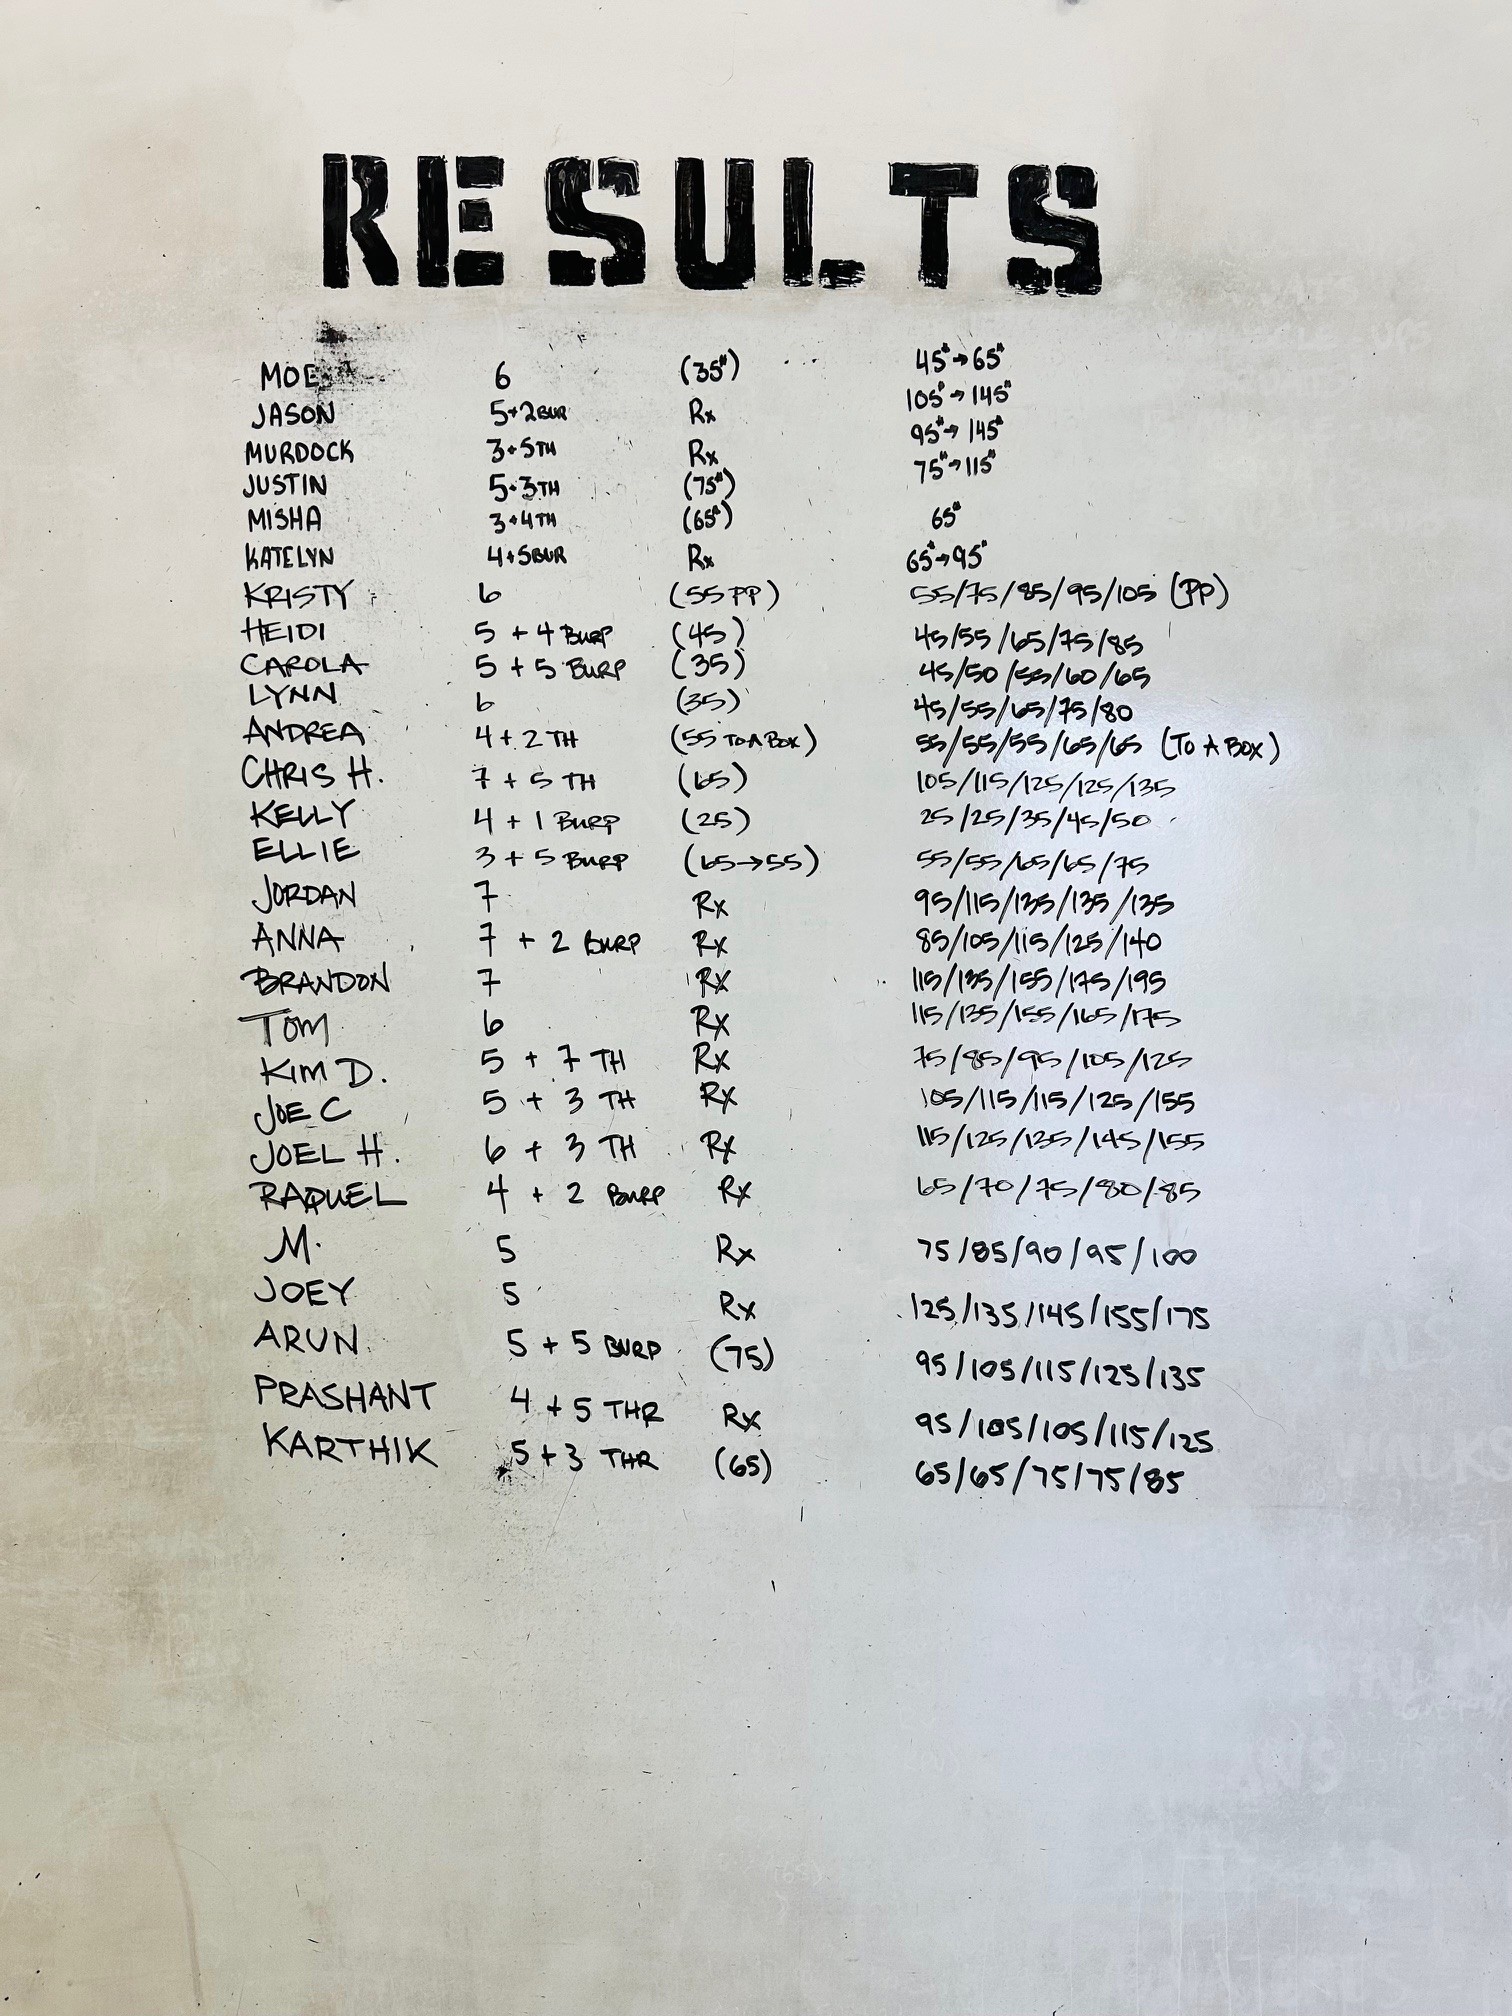 RESULTS
MOE 6 (35#) 45#→65#
JASON 5+2BUR Rx 105#→145#
MURDOCK 3+5TH Rx 95#→145#
JUSTIN 5+3TH (75#) 75#→115#
MISHA 3+4TH (65#) 65#
KATELYN 4+5BUR Rx 65#→95#
KRISTY 6 (55 PP) 55/75/85/95/105 (PP)
HEIDI 5 + 4 BURP (45) 45/55/65/75/85
CAROLA 5 + 5 BURP (35) 45/50/55/60/65
LYNN 6 (35) 45/55/65/75/80
ANDREA 4 + 2 TH (55 TO A BOX) 55/55/55/65/65 (TO A BOX)
CHRIS H. 7 + 5 TH (65) 105/115/125/125/135
KELLY 4 + 1 BURP (25) 25/25/35/45/50
ELLIE 3 + 5 BURP (65→55) 55/55/65/65/75
JORDAN 7 Rx 95/115/135/135/135
ANNA 7 + 2 BURP Rx 85/105/115/125/140
BRANDON 7 Rx 115/135/155/175/195
TOM 6 Rx 115/135/155/165/175
KIM D. 5 + 7 TH Rx 75/85/95/105/125
JOE C 5 + 3 TH Rx 105/115/115/125/155
JOEL H. 6 + 3 TH Rx 115/125/135/145/155
RAQUEL 4 + 2 BURP Rx 65/70/75/80/85
M. 5 Rx 75/85/90/95/100
JOEY 5 Rx 125/135/145/155/175
ARUN 5 + 5 BURP (75) 95/105/115/125/135
PRASHANT 4 + 5 THR Rx 95/105/105/115/125
KARTHIK 5 + 3 THR (65) 65/65/75/75/85